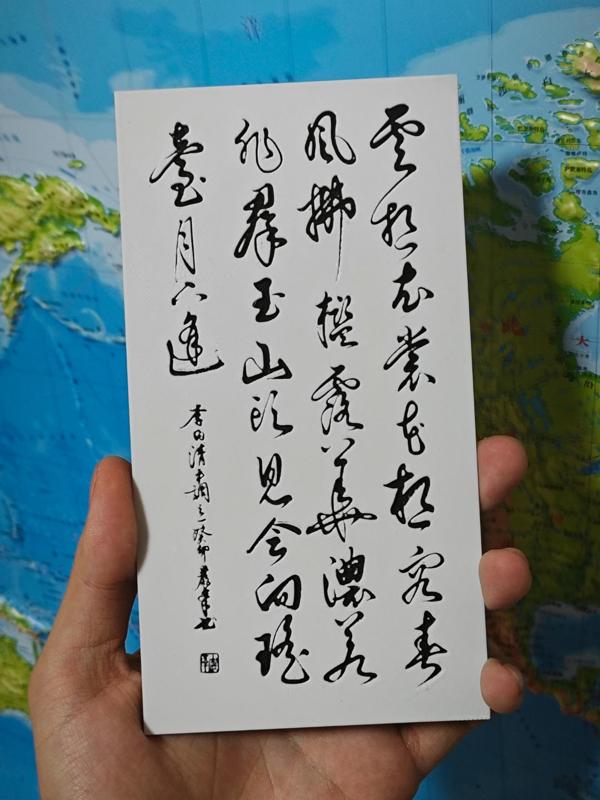 雲想衣裳花想容春
風拂檻露華濃若
非羣玉山頭見會向瑤
臺月下逢
李白清平調之一癸卯書
大